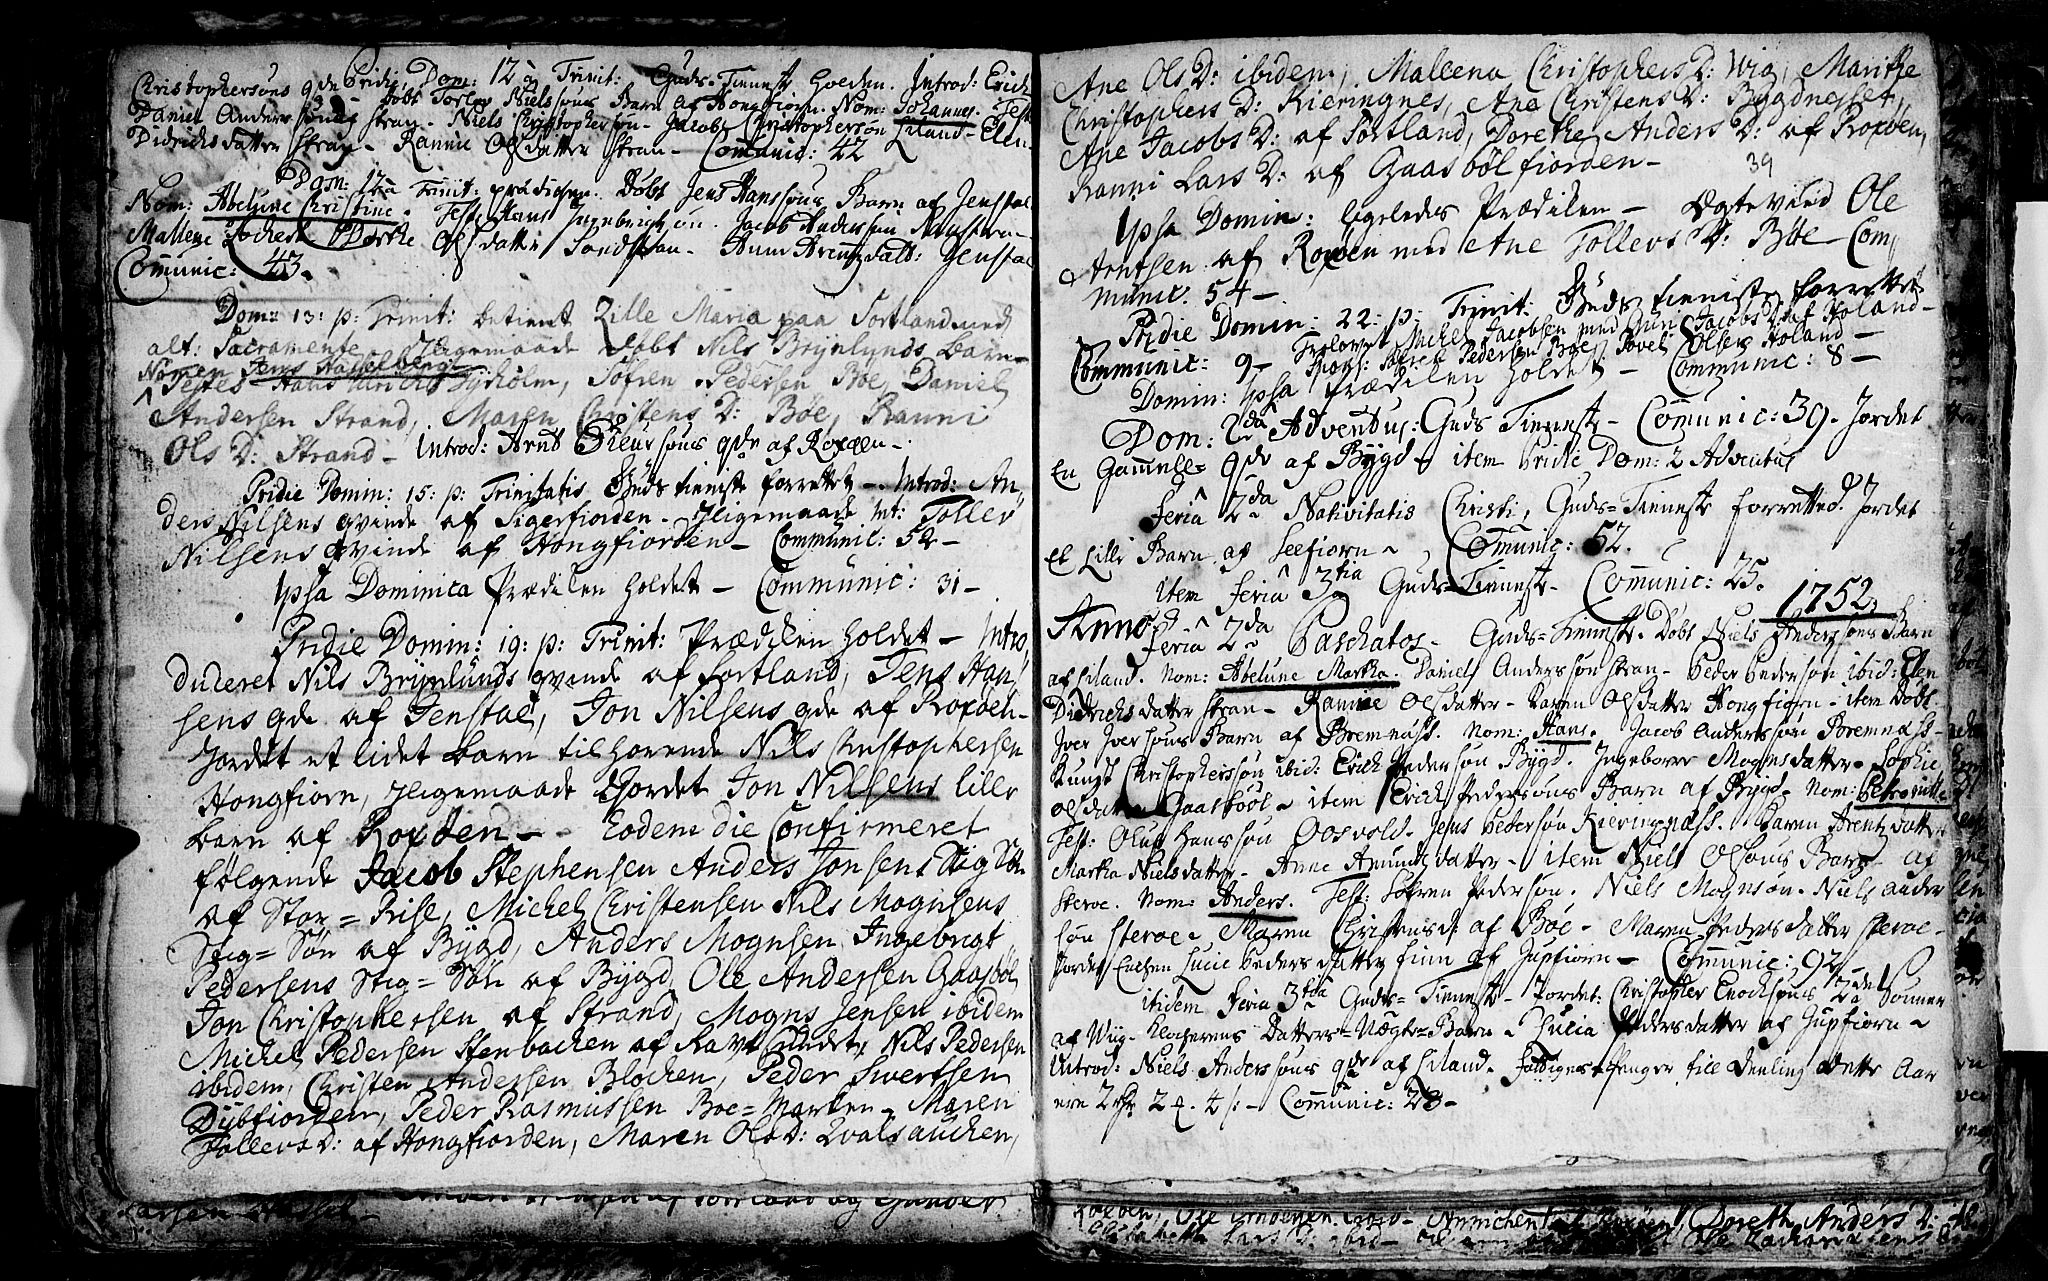 Pridie Dom: 12 p Trinit: Guds-Tienest holden. Introd: Erich
Christophersøns qde Døbt Toler Nielssøns Barn af Hongfiorn. Nom: Johannes. Test:
Daniel Anderssøn Stran - Niels Christophersøn - Jacob Christophersøn Siland - Elen
Didrichsdatter Stran - Rannie Olsdatter Stran - Comunic: 42
Dom: 12 Trinit: prædichen. Døbt Jens Hanssøns Barn af Jenstal
Nom: Abelune Christine. Test: Hans Ingebrigtsøn. Jacob Anderssøn
Mallene Dorthe Olsdatter Sandstran - Anne Arentzdatt: Jenstal
Comunic: 43.
Dom: 13: p: Trinit: betient Lille Maria paa Sortland med
alt: Sacramente Iligemaade døbt Nils Brynlunds barn
Nomen Jens Hasselberg
Testes Hans Dyrholm, Søfren Pedersen Bøe, Daniel
Andersen Strand, Maren Christens D: Bøe, Ranni
Ols D: Strand - Introd: Arnt Sieurssøns qde af Roxøen -
Pridie Domin: 15: p: Trinitatis Guds tieniste forrettet - Introd: An,
ders Nilsens qvinde af Sigerfiorden. Iligemaade int: Toller
Nilsens qvinde af Hongfiorden - Communic: 52 -
Ipsa Dominica Prædiken holdet - Communic: 31 -
Pridie Domin: 19: p: Trinit: Prædiken holdet - Intro,
duceret Nils Brynlunds qvinde af Sortland, Jens Han,
sens qde af Jenstad, Jon Nilsens qde af Roxøen -
Jordet et lidet barn tilhørende Nils Christophersen
Hongfiorn, Iligemaade Jordet Jon Nilsens lille
barn af Roxøen - Eodem die Confirmeret
følgende Jacob Stephensen Anders Jonsens Stig Søn
af Stor = Rise, Michel Christensen Nils Mognsens
Stig = Søn af Bygd, Anders Mognsen Ingebrigt
Pedersens Stig = Søn af Bygd, Ole Andersen Gaasbøl
Jon Christophersen af Strand, Mogns Jensen ibidem
Michel Pedersen Stenbachen af Ravnfiordet, Nils Pedersen
ibidem, Christen Andersen Blochen, Peder Siversen
Dybfiorden, Peder Rasmussen Boe = Marken - Maren
Tollevs D: af Hongfiorden, Maren Ols D: Qvalsauchen,
Ane Ols D: ibidem, Maleena Christophers D: Wig, Marithe
Christophers D: Kieringnes, Ane Christens D: Bygdnesset,
Ane Jacobs D: af Sortland, Dorethe Anders D: af Roxøen,
Ranni Lars D: af Gaasbølfiorden - 39
Ipsa Domin: ligeledes Prædiken - Egteviid Ole
Arntsen af Roxøen med Ane Tollevs D: Bøe - Com,
munic. 54 -
Pridie Domin: 22: p: Trinit: Guds tieniste forrettet
Communic: 9 - Trolovet Michel Jacobsen med Guri Jacobs D: af Holand -
Spons: Søfren Pedersen Bøe, Povel Olsen Holand -
Domin: Ipsa Prædiken holdet - Communic: 8 -
Dom: 2da Adventus: Guds Tienest - Comunic: 39. Jordet
En Gammel qde af Bygd - item Pridie Dom: 2 Adventus
Feria 2da Nativitatis Christi, Guds-Tienest forretted. Jordet
et Lille Barn af Seefiorn - Comunic: 52.
item Feria 3tia Guds-Tienest - Comunic: 25.
Anno 1752
Feria 2da Paschatos - Guds-Tienest. Døbt Niels Anderssøns Barn
af Siland. Nom: Abelune Martha. Daniel Anderssøn Stran - Peder Pedersøn ibid: Elen
Didrichsdatter Stran - Rannie Olsdatter - Karen Olsdatter Hongfiorn - item Døbt
Iver Iverssøns Barn af Bremnæss. Nom: Hans. Jacob Anderssøn Bremnæss -
Kungt Christopherssøn ibid: Erich Pedersøn Bygd. Ingeborre Mognsdatter - Sophie
Olsdatter Gaasbøl - item Erich Pedersøns Barn af Bygd - Nom: Petronille
Test: Oluf Hanssøn Oosvold. Jens Pedersøn Kieringnæss. Karen Arentzdatter
Martha Nielsdatter - Anne Amundsdatter - item Niels Olsøns Barn af
Steroe. Nom: Anders. Test: Søfren Pedersøn. Niels Mognsøn. Niels Ander
søn Steroe - Maren Christensd: af Bøe - Maren Pedersdatter Steroe -
Jordet Enchen Lucie Pedersdatter Finn af Jupfiorn - Comunic: 92 -
itidem Feria 3tia Guds-Tienest - Jordet: Christopher Enochsøns 2de Sønner
af Wiig - Klocherens Datters-Uægte-Barn - Lucia Pedersdatter af Jupfiorn -
Introd: Niels Anderssøns qde af Siland. Fattiges Penger till Deeling dette Aar
ere 2 rdr 2 . 4 s: - Comunic: 28 -